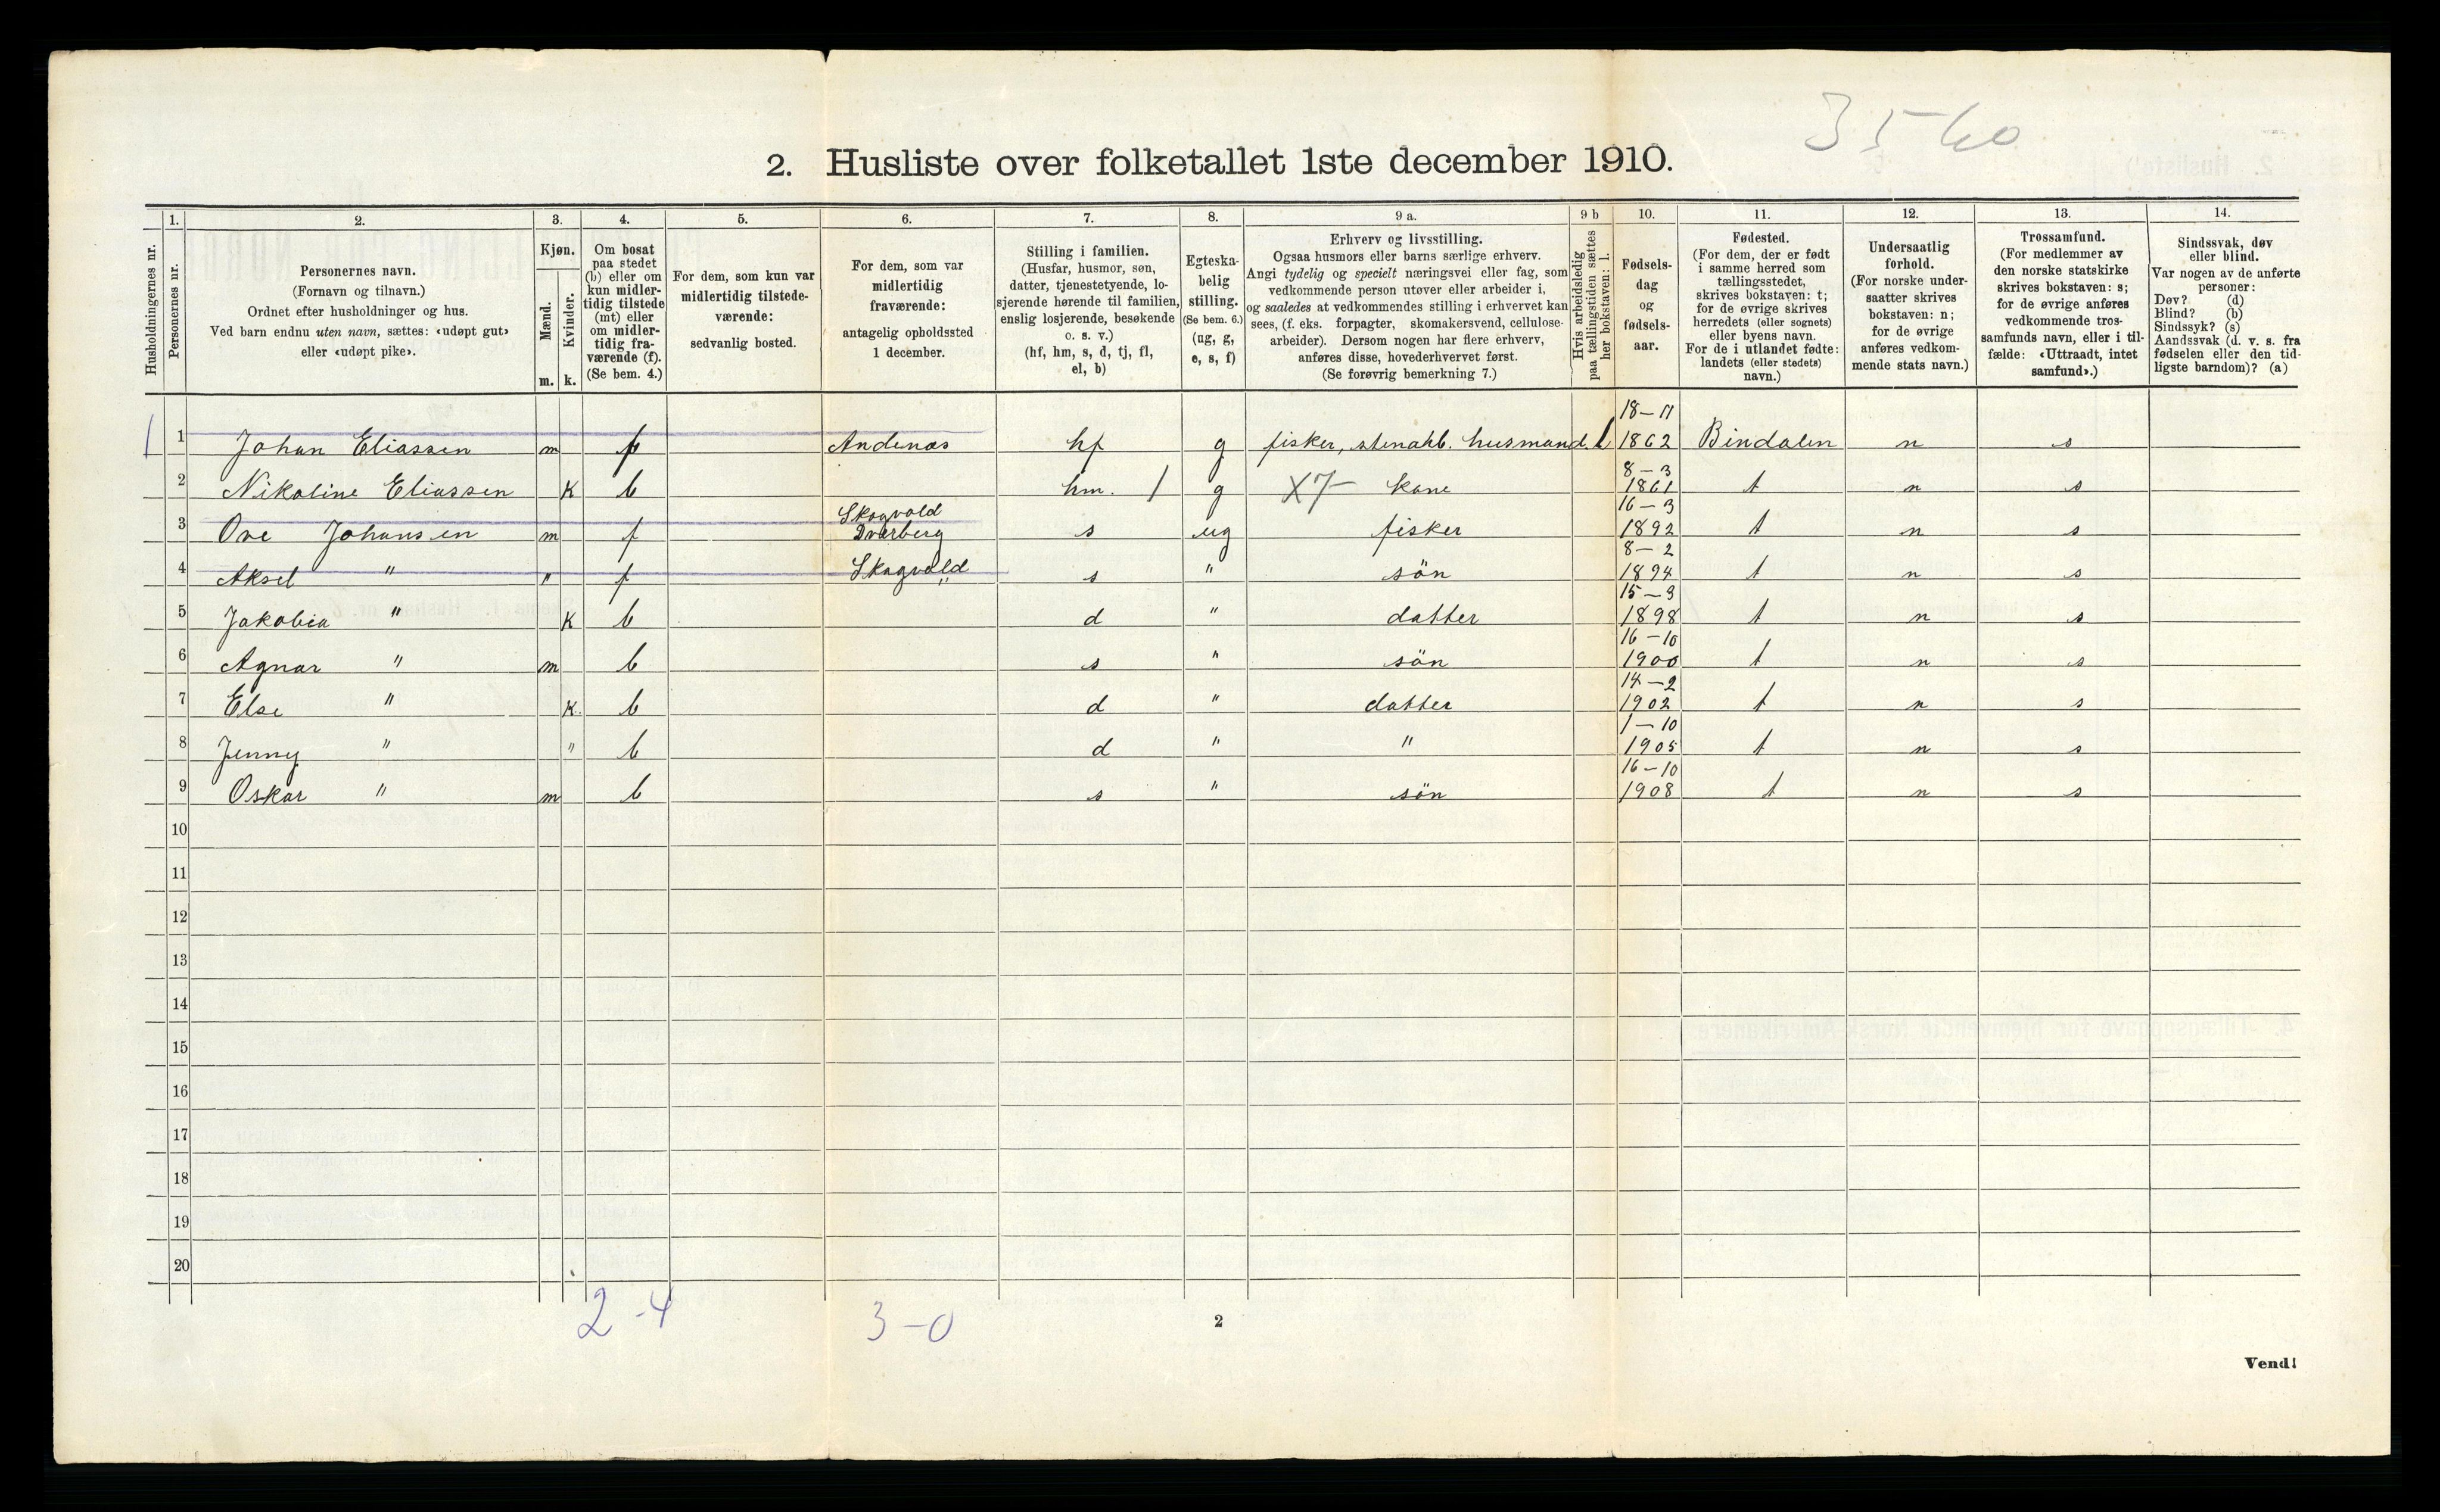 35-60
2. Husliste over folketallet 1ste december 1910.
Husholdningernes nr.
1.
Personernes nr.
2.
Personernes navn.
(Fornavn og tilnavn.)
Ordnet efter husholdninger og hus.
Ved barn endnu uten navn, sættes: «udøpt gut»
eller «udøpt pike».
3.
Kjøn.
Mænd.
Kvinder.
m. k.
4.
Om bosat
paa stedet
(b) eller om
kun midler-
tidig tilstede
(mt) eller
om midler-
tidig fra-
værende (f).
(Se bem. 4.)
5.
For dem, som kun var
midlertidig tilstede-
værende:
sedvanlig bosted.
6.
For dem, som var
midlertidig
fraværende:
antagelig opholdssted
1 december.
7.
Stilling i familien.
(Husfar, husmor, søn,
datter, tjenestetyende, lo-
sjerende hørende til familien,
enslig losjerende, besøkende
o. s. v.)
(hf, hm, s, d, tj, fl,
el, b)
8.
Egteska-
belig
stilling.
(Se bem. 6.)
(ug, g,
e, s, f)
9 a.
Erhverv og livsstilling.
Ogsaa husmors eller barns særlige erhverv.
Angi tydelig og specielt næringsvei eller fag, som
vedkommende person utøver eller arbeider i,
og saaledes at vedkommendes stilling i erhvervet kan
sees, (f. eks. forpagter, skomakersvend, cellulose-
arbeider). Dersom nogen har flere erhverv,
anføres disse, hovederhvervet først.
(Se forøvrig bemerkning 7.)
9 b
Hvis arbeidsledig
paa tællingstiden sættes
her bokstaven: l.
10.
Fødsels-
dag
og
fødsels-
aar.
11.
Fødested.
(For dem, der er født
i samme herred som
tællingsstedet,
skrives bokstaven: t;
for de øvrige skrives
herredets (eller sognets)
eller byens navn.
For de i utlandet fødte:
landets (eller stedets)
navn.)
12.
Undersaatlig
forhold.
(For norske under-
saatter skrives
bokstaven: n;
for de øvrige
anføres vedkom-
mende stats navn.)
13.
Trossamfund.
(For medlemmer av
den norske statskirke
skrives bokstaven: s;
for de øvrige anføres
vedkommende tros-
samfunds navn, eller i til-
fælde: «Uttraadt, intet
samfund».)
14.
Sindssvak, døv
eller blind.
Var nogen av de anførte
personer:
Døv? (d)
Blind? (b)
Sindssyk? (s)
Aandssvak (d. v. s. fra
fødselen eller den tid-
ligste barndom)? (a)
18-11
1 1 Johan Eliassen m f Andenæs hf g fisker, stenarb. husmand. l 1862 Bindalen n s
8-3
2 Nikoline Eliassen K b hm. 1 g X7- kone 1861 t n s
Skogvold 16-3
3 Ove Johansen m f Dverberg s ug fisker 1892 t n s
8-2
4 Aksel " " f Skogvold " s " sön 1894 t n s
15-3
5 Jakobia " K b d " datter 1898 t n s
16-10
6 Agnar " m b s " sön 1900 t n s
14-2
7 Else " K. b d " datter 1902 t n s
1-10
8 Jenny " " b d " " 1905 t n s
16-10
9 Oskar " m b s " sön 1908 t n s
10
11
12
13
14
15
16
17
18
19
20
2-4 3-0
2
Vend!